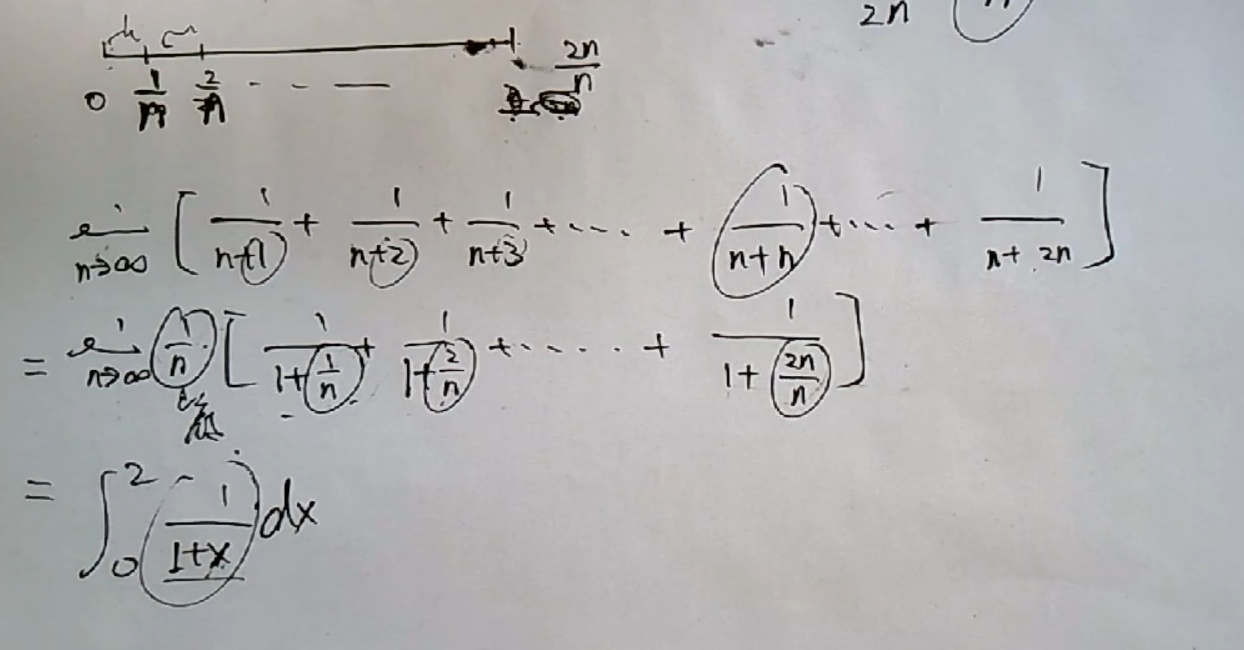 2n
0 1/n 2/n - - — 2n/n
lim n→∞ [ 1/(n+1) + 1/(n+2) + 1/(n+3) + .... + 1/(n+n) + ... + 1/(n+2n) ]
= lim n→∞ 1/n [ 1/(1+1/n) + 1/(1+2/n) + ..... + 1/(1+2n/n) ]
= ∫₀² 1/(1+x) dx